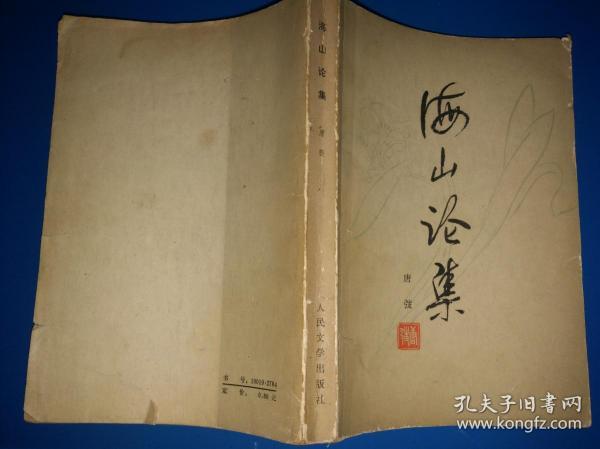 海山论集
唐弢
海山论集
唐弢
人民文学出版社
书号:10019·2764
定价:0.86元
孔夫子旧书网
www.kongfz.com